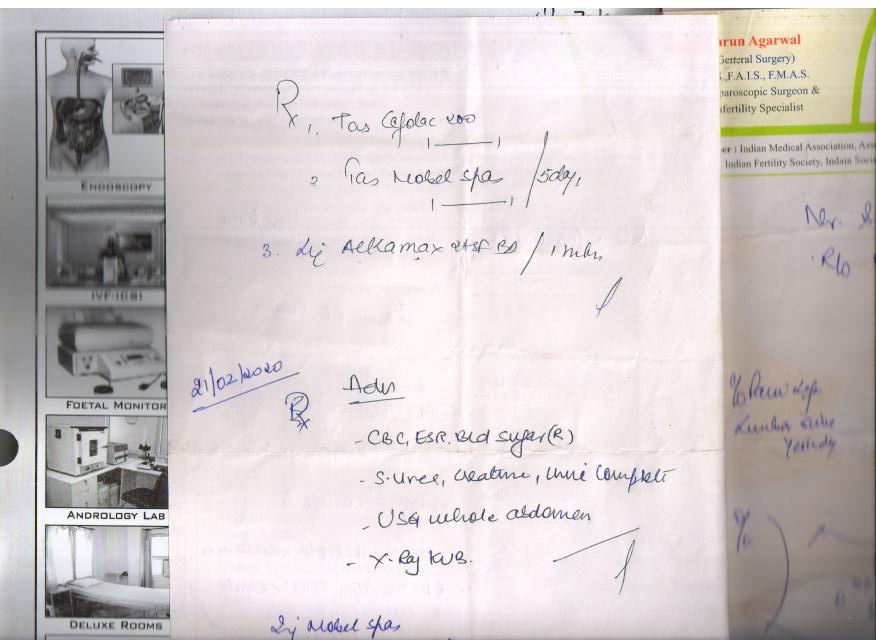 ENDOSCOPY
IVF-ICSI
FOETAL MONITOR
ANDROLOGY LAB
DELUXE ROOMS
Rx
1. Tas Cefolac 200
2 Tas Mobel spas /5days
3. Liq Alkamax 2tsf BD /1 mth
21/02/2020
Rx Adv
- CBC, ESR, Bld sugar (R)
- S. Urea, creatinine, Urine Complete
- USG whole abdomen
- X-Ray KUB.
Inj Mobel spas
run Agarwal
General Surgery)
.,F.A.I.S., F.M.A.S.
paroscopic Surgeon &
nfertility Specialist
er : Indian Medical Association, Ass
Indian Fertility Society, Indain Socie
R/o
c/o Pain
Yesterday